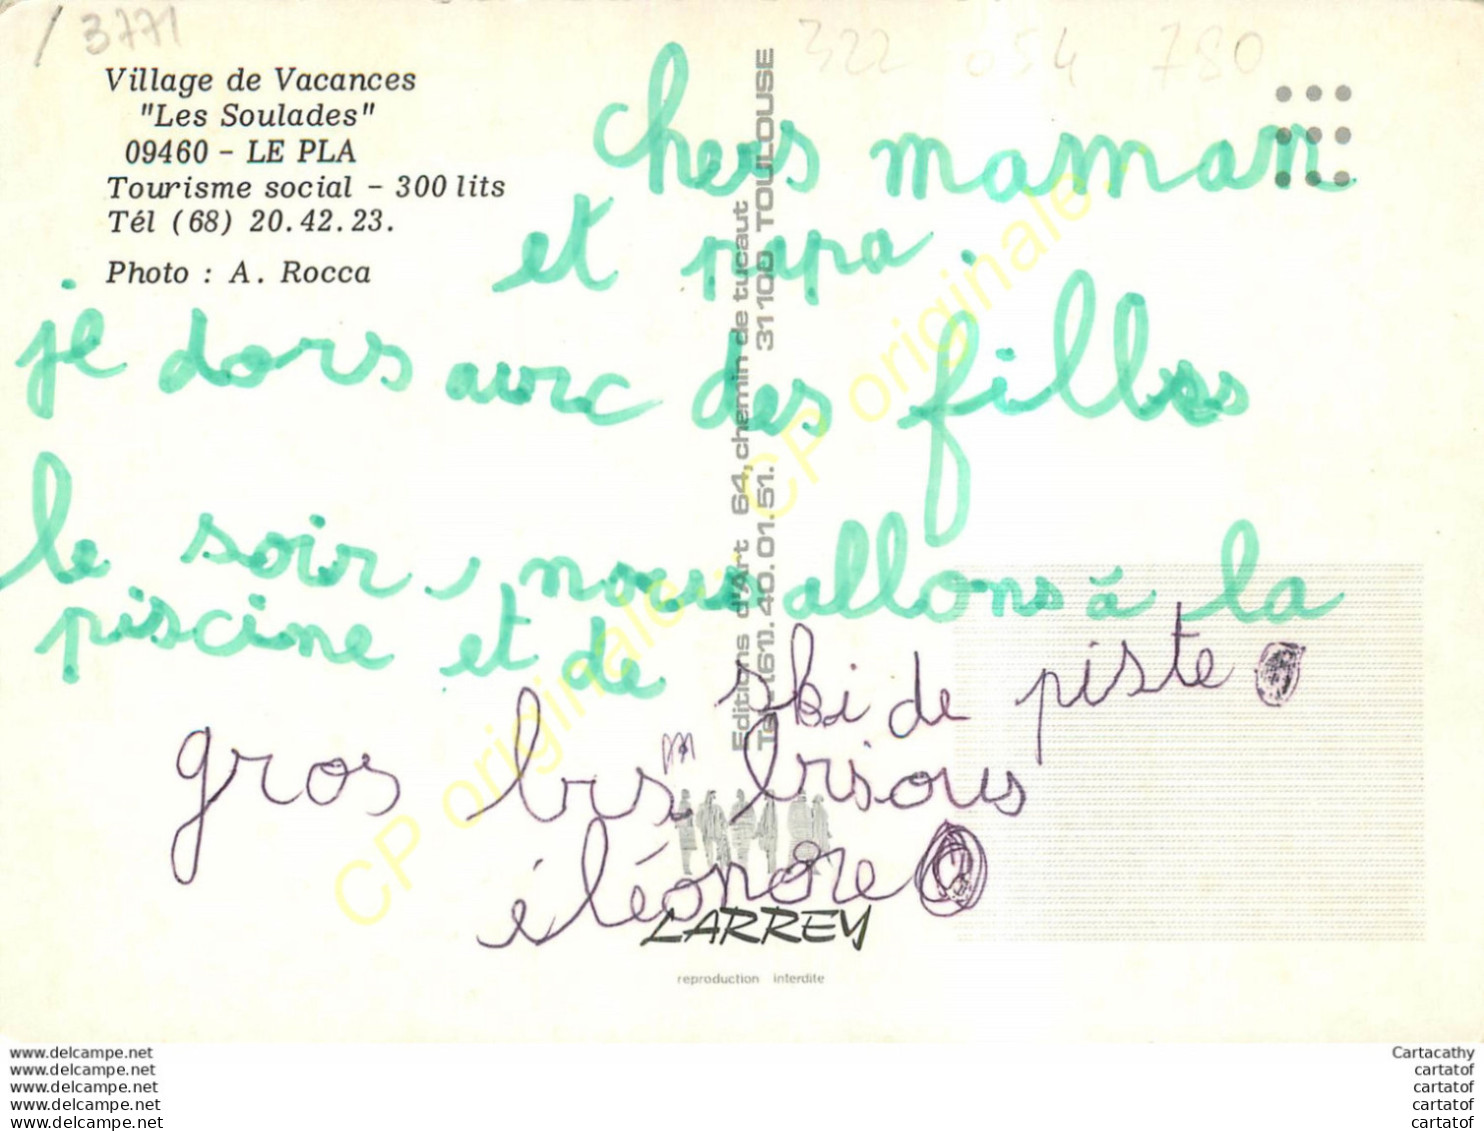 / 3771
322 054 780
Village de Vacances
"Les Soulades"
09460 - LE PLA
Tourisme social - 300 lits
Tél (68) 20.42.23.
Photo : A. Rocca
chers maman
et papa.
je dors avec des filles
le soir, nous allons à la
piscine et de ski de piste
gros brs m brisous
éléonore
Editions d'Art 64, chemin de tucaut 31100 TOULOUSE
Tel. (61). 40.01.51.
LARREY
reproduction interdite
CP originale
CP originale
www.delcampe.net
www.delcampe.net
www.delcampe.net
www.delcampe.net
www.delcampe.net
Cartacathy
cartatof
cartatof
cartatof
cartatof